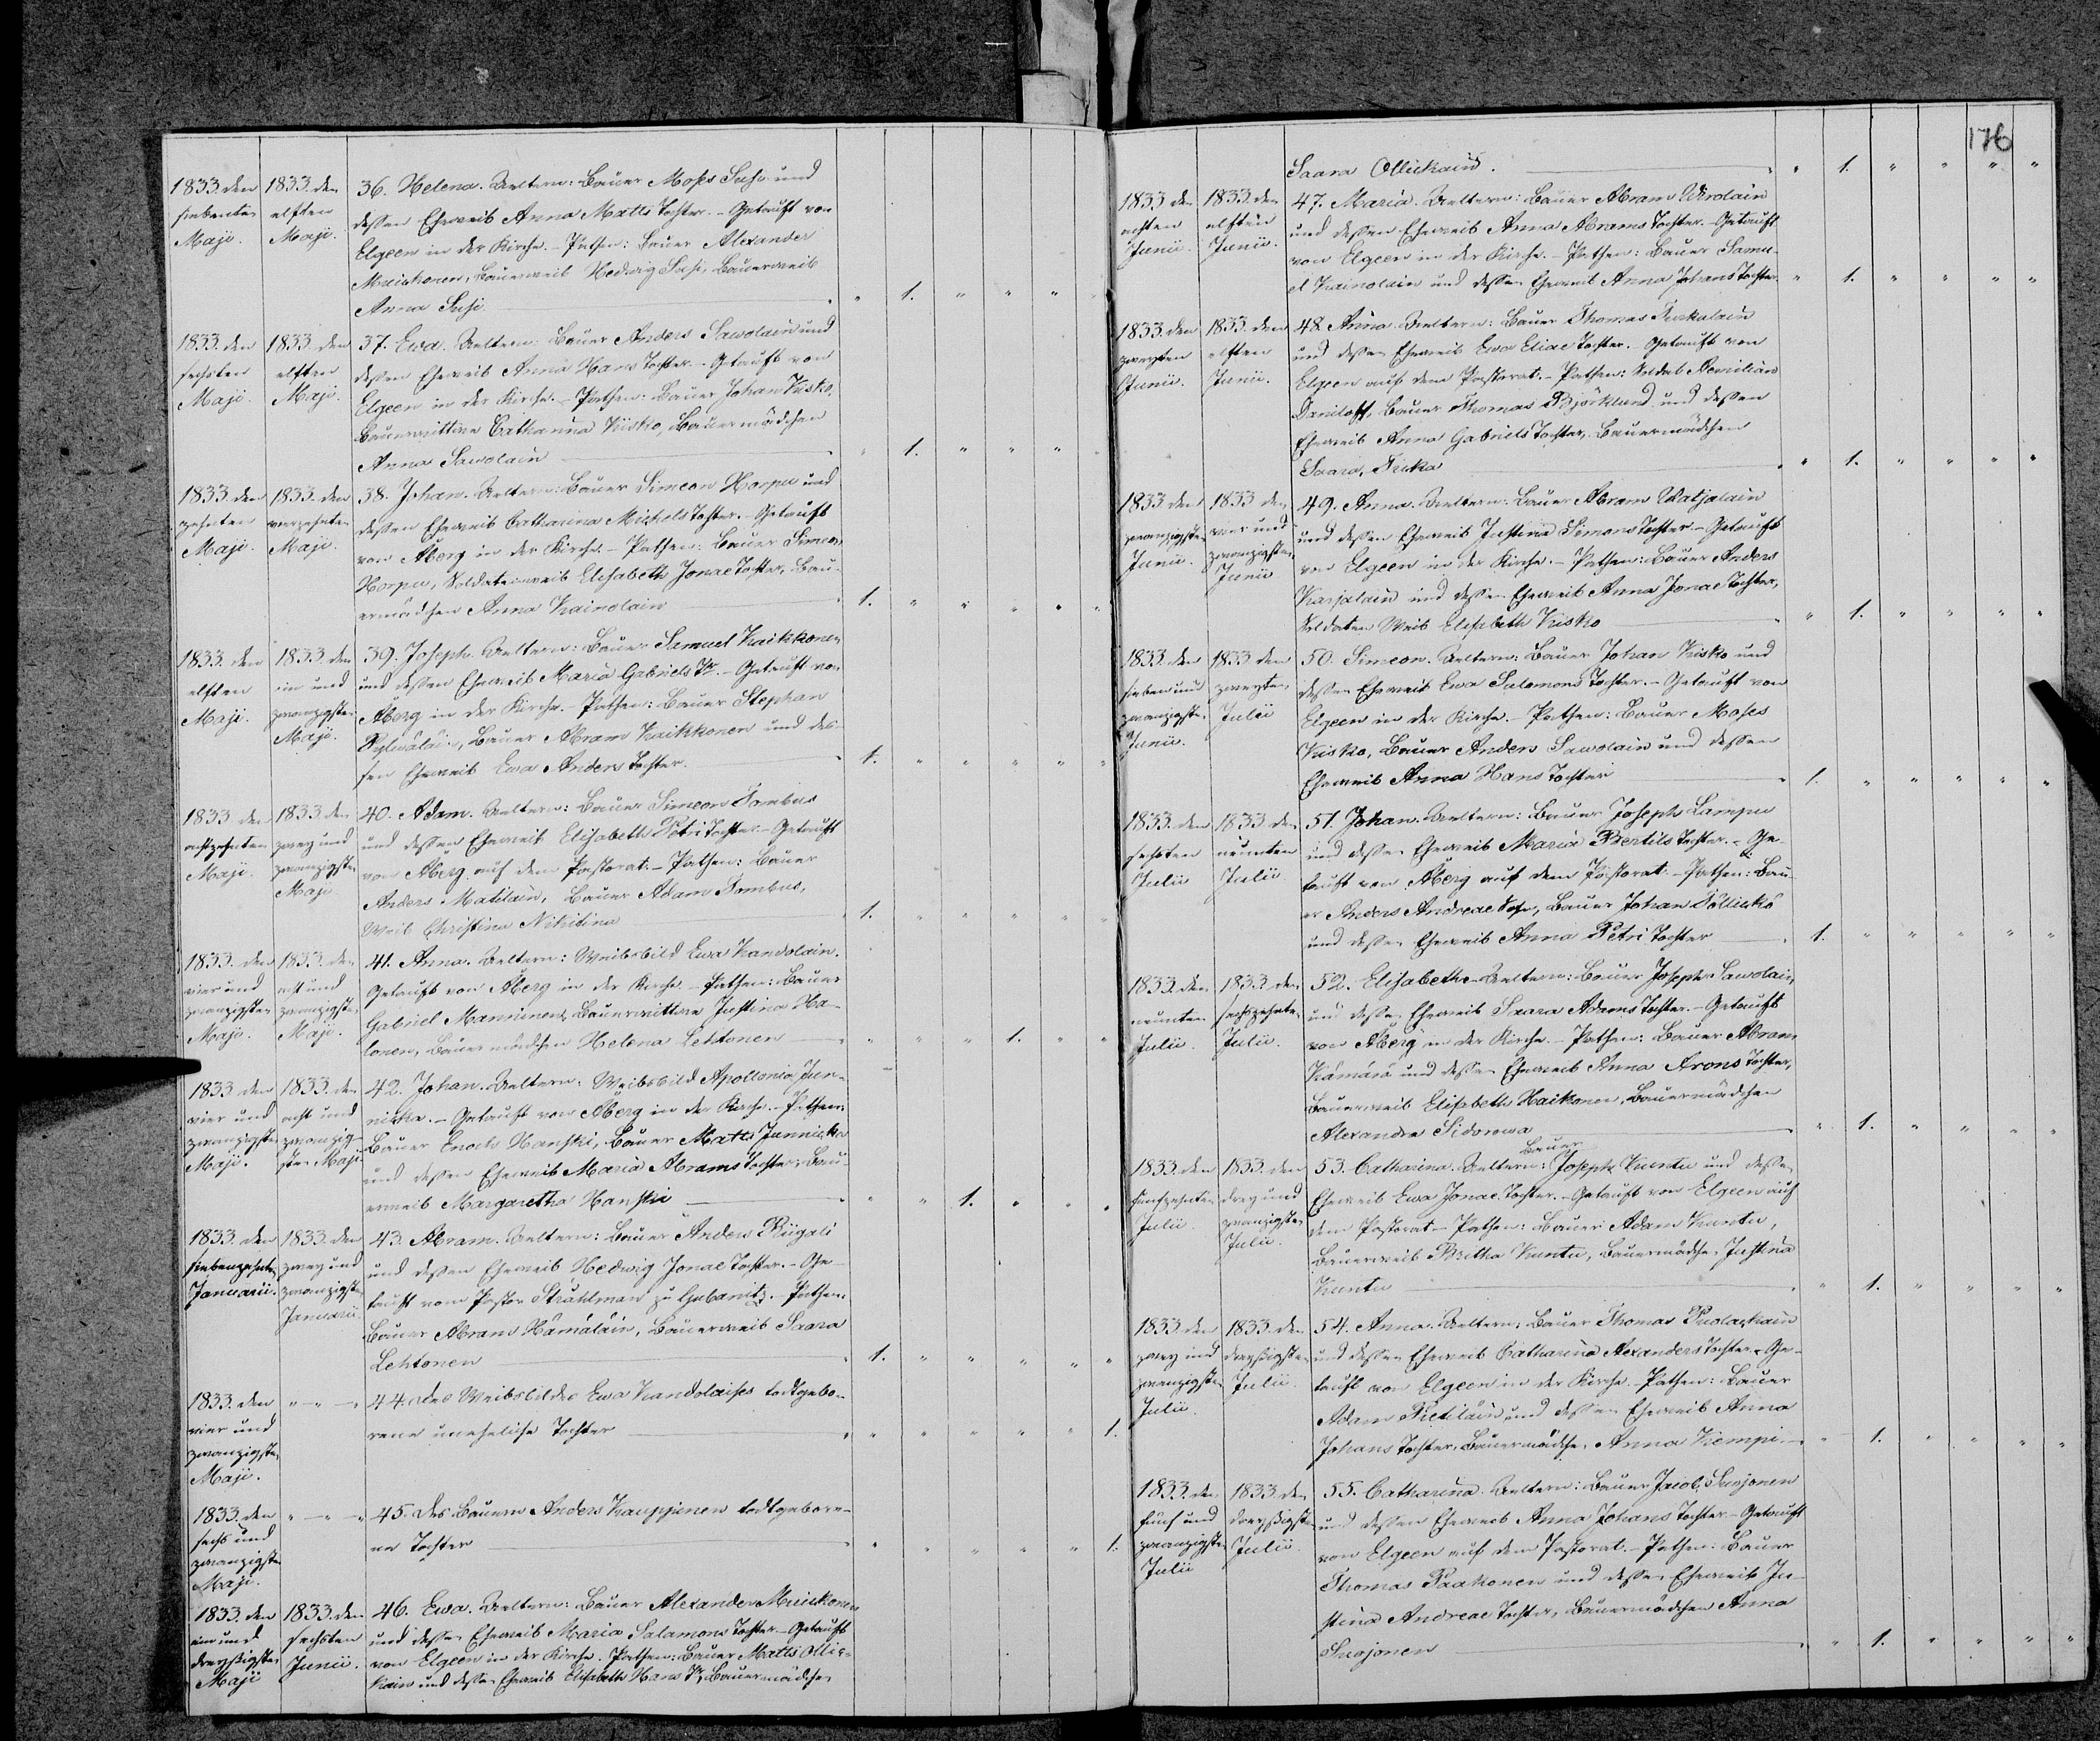 1833. den 1833. den 36. Helena. Aeltern: Bauer Moses Susi und
siebenten elften dessen Eheweib Anna Matts Tochter. - Getauft von
Maji. Maji. Elgeen in der Kirche. - Pathen: Bauer Alexander
Muickonen, Bauerweib Hedwig Susi, Bauerweib
Anna Susi " 1. " " "
1833. den 1833. den 37. Ewa. Aeltern: Bauer Anders Sawolain und
sechsten elften dessen Eheweib Anna Hans Tochter. - Getauft von
Maji. Maji. Elgeen in der Kirche. - Pathen: Bauer Johan Kisko,
Bauerwittwe Catharina Kisko, Bauermädchen
Anna Sawolain " 1. " " "
1833. den 1833. den 38. Johan. Aeltern: Bauer Simeon Horpu und
zehnten vierzehnten dessen Eheweib Catharina Michels Tochter. - Getauft
Maji. Maji. von Åberg in der Kirche. - Pathen: Bauer Simeon
Horpu, Soldatenweib Elisabeth Jonae Tochter, Bau-
ermädchen Anna Kainolain 1. " " " " "
1833. den 1833. den 39. Joseph. Aeltern: Bauer Samuel Kaikkonen
elften ein und und dessen Eheweib Maria Gabriels Tr. - Getauft von
Maji. zwanzigsten Åberg in der Kirche. - Pathen: Bauer Stephan
Maji. Bauer Abram Kaikkonen und des-
sen Eheweib Ewa Anders Tochter. 1. " " " " "
1833 den 1833. den 40. Adam. Aeltern: Bauer Simeon Tombus
achtzehnten zwey und und dessen Eheweib Elisabeth Petri Tochter. - Getauft
Maji. zwanzigsten von Åberg auf dem Pastorat. - Pathen: Bauer
Maji Anders Matilain, Bauer Adam Tombus,
Weib Christina Nikitina 1. " " " " "
1833. den 1833. den 41. Anna. Aeltern: Weibsbild Ewa Kandolain.
vier und acht und Getauft von Åberg in der Kirche. - Pathen: Bauer
zwanzigsten zwanzigsten Gabriel Manninen, Bauerwittwe Justina Ha-
Maji. Maji. lonen, Bauermädchen Helena Lehtonen " " " 1. " "
1833. den 1833. den 42. Johan. Aeltern: Weibsbild Apollonia Jun-
vier und acht und nicka. - Getauft von Åberg in der Kirche. - Pathen:
zwanzigsten zwanzig- Bauer Enoch Hanski, Bauer Matts Junnicka
Maji. sten Maji. und dessen Eheweib Maria Abrams Tochter, Bau-
erweib Margaretha Hanski " " 1. " " "
1833. den 1833. den 43. Abram. Aeltern: Bauer Anders Riigali
siebenzehnten zwey und und dessen Eheweib Hedwig Jonae Tochter. - Ge-
Januarii. zwanzigsten tauft vom Pastor Stråhlman zu Gubanitz. - Pathen:
Januarii Bauer Abram Hämäläin, Bauerweib Saara
Lehtonen 1. " " " " "
1833. den " - " - " 44. Des Weibsbildes Ewa Kandolaises todtgebo-
vier und rene uneheliche Tochter " " " " " 1.
zwanzigsten
Maji.
1833. den " - " - " 45. Des Bauern Anders Kauppinen todtgebore-
sechs und ne Tochter " " " " " 1.
zwanzigsten
Maji.
1833. den 1833. den 46. Ewa. Aeltern: Bauer Alexander Muickonen
ein und sechsten und dessen Eheweib Maria Salamons Tochter. - Getauft
dreyßigsten Junii. von Elgeen in der Kirche. Pathen: Bauer Matts Ollic-
Maji kain und dessen Eheweib Elisabeth Hans Tr., Bauermädchen
176
Saara Ollickain. " 1. " " " "
1833 den 1833. den 47. Maria. Aeltern: Bauer Abram Wirolain
achten elften und dessen Eheweib Anna Abrams Tochter. - Getauft
Junii. Junii. von Elgeen in der Kirche. - Pathen: Bauer Samu-
el Kainolain und dessen Eheweib Anna Johans Tochter " 1. " " " "
1833. den 1833. den 48. Anna. Aeltern: Bauer Thomas
zweyten elften und dessen Eheweib Ewa Eliae Tochter. Getauft von
Junii. Junii. Elgeen auf dem Pastorat. - Pathen: Soldat
Daniloff, Bauer Thomas Björklund und dessen
Eheweib Anna Gabriels Tochter, Bauermädchen
Saara " 1. " " " "
1833. den 1833 den 49. Anna. Aeltern: Bauer Abram Watjalain
zwanzigsten vier und und dessen Eheweib Justina Simons Tochter. - Getauft
Junii. zwanzigsten von Elgeen in der Kirche. - Pathen: Bauer Anders
Junii Karjalain und dessen Eheweib Anna Jonae Tochter,
Soldaten Weib Elisabeth Kisko " 1. " " " "
1833. den 1833 den 50. Simeon. Aeltern: Bauer Johan Kisko und
sieben und zweyten dessen Eheweib Ewa Salomons Tochter. - Getauft von
zwanzigsten Julii Elgeen in der Kirche. - Pathen: Bauer Moses
Junii. Kisko, Bauer Anders Sawolain und dessen
Eheweib Anna Hans Tochter 1. " " " " "
1833. den 1833 den 51 Johan. Aeltern: Bauer Joseph Lampu
sechsten neunten und dessen Eheweib Maria Bertils Tochter. - Ge-
Julii Julii tauft von Åberg auf dem Pastorat. - Pathen: Bau-
er Anders Andreae Sohn, Bauer Johan
und dessen Eheweib Anna Petri Tochter 1. " " " " "
1833. den 1833. den 52. Elisabeth. Aeltern: Bauer Joseph Sawolain,
neunten sechszehnten und dessen Eheweib Saara Adams Tochter. - Getauft
Julii. Julii. von Åberg in der Kirche. - Pathen: Bauer Abram
Kämärä und dessen Eheweib Anna Arons Tochter,
Bauerweib Elisabeth Haikonen, Bauermädchen
Alexandra Sidorowa " 1. " " " "
Bauer
1833. den 1833. den 53. Catharina. Aeltern: Joseph Kuntu und dessen
funfzehnten drey und Eheweib Ewa Jonae Tochter. - Getauft von Elgeen auf
Julii. zwanzigsten dem Pastorat. - Pathen: Bauer Adam Kuntu,
Julii. Bauerweib Britha Kuntu, Bauermädchen Justina
Kuntu " 1. " " " "
1833 den 1833. den 54. Anna. Aeltern: Bauer Thomas Puolackain
zwey und dreyßigsten und dessen Eheweib Catharina Alexanders Tochter. - Ge-
zwanzigsten Julii. tauft von Elgeen in der Kirche. - Pathen: Bauer
Julii. Adam Pietiläin und dessen Eheweib Anna
Johans Tochter, Bauermädchen Anna Kempi. " 1. " " " "
1833. den 1833. den 55. Catharina. Aeltern: Bauer Jacob Suojonen
funf und dreyßigsten und dessen Eheweib Anna Johans Tochter. - Getauft
zwanzigsten Julii. von Elgeen auf dem Pastorat. - Pathen: Bauer
Julii Thomas Paakonen und dessen Eheweib Ju-
stina Andreae Tochter, Bauermädchen Anna
Suojonen " 1. " " " "